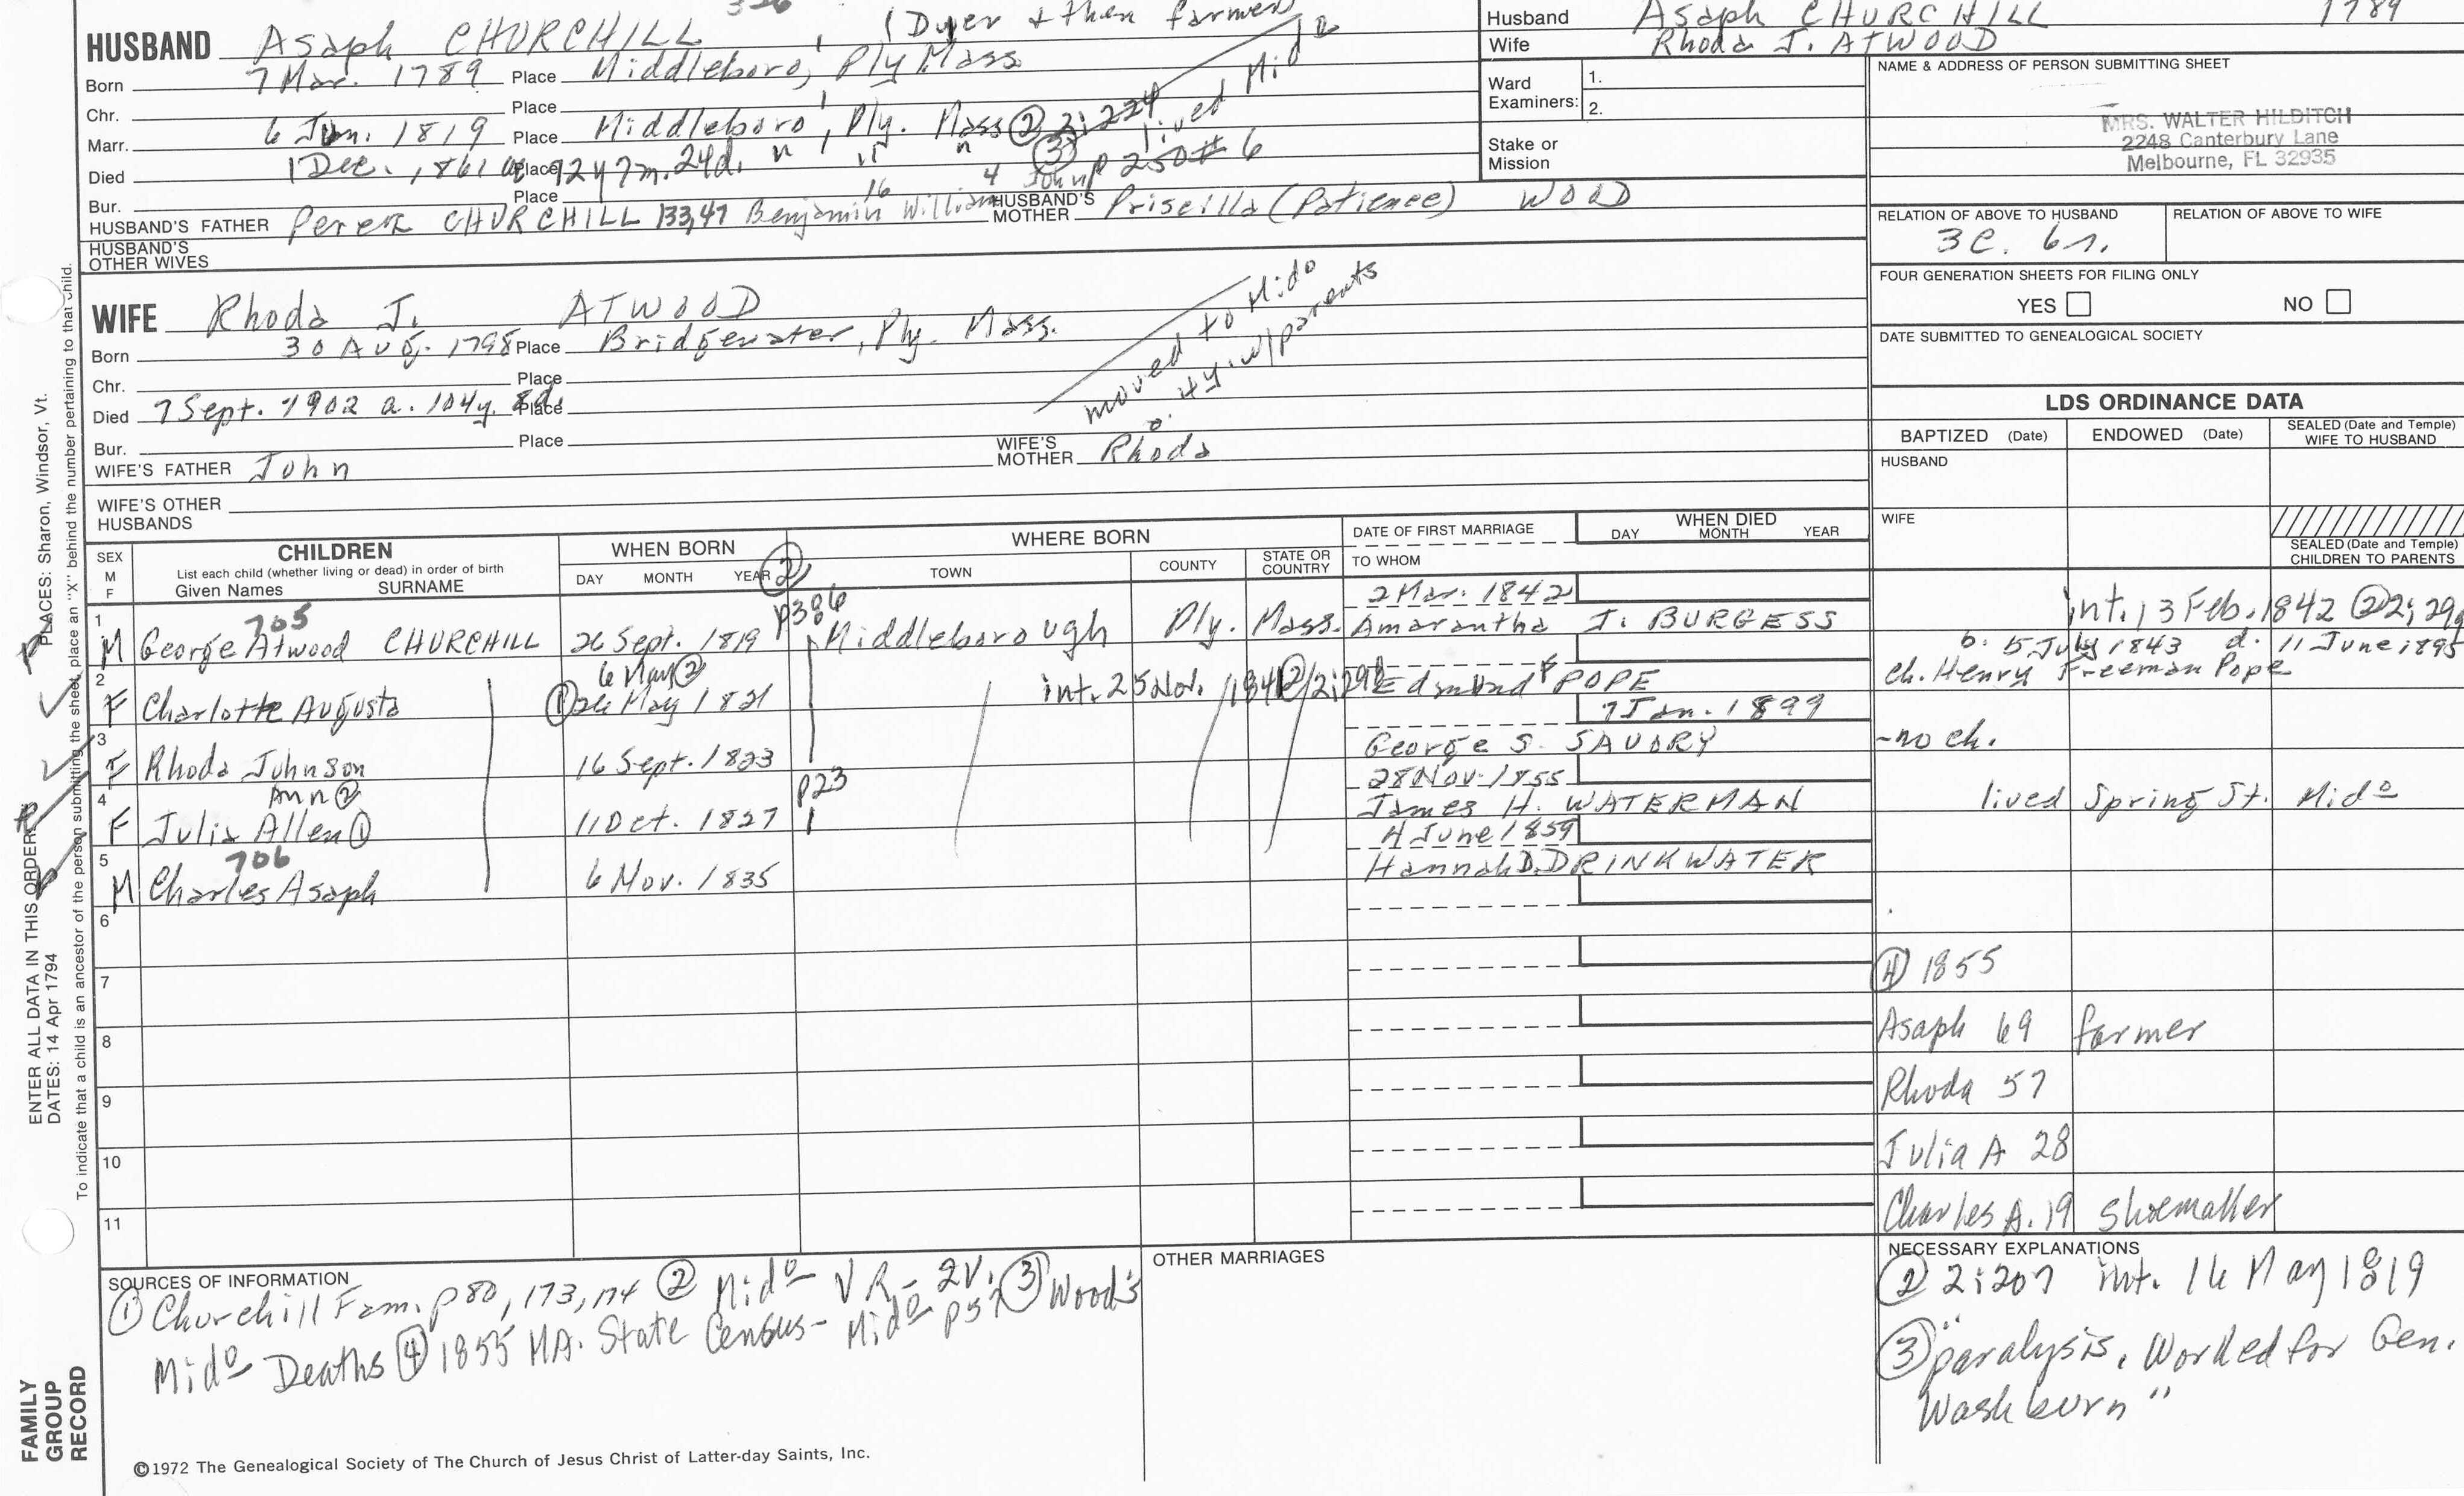 HUSBAND Asaph CHURCHILL (Dyer & then farmer)
Born 7 Mar. 1789 Place Middleboro, Ply Mass
Chr. Place
Marr. 6 Jun. 1819 Place Middleboro, Ply. Mass ② 2:224 lived Mido
Died 1 Dec. 1861 a. 72 y 7 m. 24 d. Place " " " ③ p 250 # 6
Bur. Place
HUSBAND'S FATHER Perez CHURCHILL 133,47 Benjamin 16 William 4 John HUSBAND'S MOTHER Priscilla (Patience) WOOD
HUSBAND'S OTHER WIVES
Husband Asaph CHURCHILL 1789
Wife Rhoda J. ATWOOD
Ward Examiners: 1.
2.
Stake or Mission
NAME & ADDRESS OF PERSON SUBMITTING SHEET
MRS. WALTER HILDITCH
2248 Canterbury Lane
Melbourne, FL 32935
RELATION OF ABOVE TO HUSBAND RELATION OF ABOVE TO WIFE
3C. 6r.
FOUR GENERATION SHEETS FOR FILING ONLY
YES NO
DATE SUBMITTED TO GENEALOGICAL SOCIETY
WIFE Rhoda J. ATWOOD
Born 30 Aug. 1798 Place Bridgewater, Ply. Mass.
moved to Mido
a. 4y. w/parents
Chr. Place
Died 7 Sept. 1902 a. 104y. 8d. Place
Bur. Place
WIFE'S FATHER John WIFE'S MOTHER Rhoda
WIFE'S OTHER HUSBANDS
LDS ORDINANCE DATA
BAPTIZED (Date) ENDOWED (Date) SEALED (Date and Temple) WIFE TO HUSBAND
HUSBAND
WIFE
SEALED (Date and Temple) CHILDREN TO PARENTS
SEX M F CHILDREN List each child (whether living or dead) in order of birth Given Names SURNAME
WHEN BORN DAY MONTH YEAR ②
WHERE BORN TOWN COUNTY STATE OR COUNTRY
DATE OF FIRST MARRIAGE TO WHOM
WHEN DIED DAY MONTH YEAR
1 705 p386 2 Mar. 1842
M George Atwood CHURCHILL 26 Sept. 1819 Middleborough Ply. Mass. Amarantha J. BURGESS int. 13 Feb. 1842 ② 2; 29
b. 5 July 1843 d. 11 June 1895
2 6 May ②
F Charlotte Augusta ① 26 May 1821 int. 25 Nov. 1841 Edmund POPE ch. Henry Freeman Pope
3 7 Jan. 1899
F Rhoda Johnson 16 Sept. 1823 George S. SAVORY -no ch.
4 Ann ② p23 28 Nov. 1855
F Julia Allen ① 11 Oct. 1827 James H. WATERMAN lived Spring St. Mido
5 706 4 June 1859
M Charles Asaph 6 Nov. 1835 Hannah D. DRINKWATER
6
7 ④ 1855
8 Asaph 69 farmer
9 Rhoda 57
10 Julia A 28
11 Charles A. 19 Shoemaker
SOURCES OF INFORMATION
① Churchill Fam. p 80, 173, 174 ② Mido VR - 2V. ③ Wood's
Mido Deaths ④ 1855 MA. State Census - Mido p57
OTHER MARRIAGES
NECESSARY EXPLANATIONS
② 2:207 int. 16 May 1819
③ "paralysis. Worked for Gen.
Washburn"
©1972 The Genealogical Society of The Church of Jesus Christ of Latter-day Saints, Inc.
FAMILY GROUP RECORD
ENTER ALL DATA IN THIS ORDER:
PLACES: Sharon, Windsor, Vt.
DATES: 14 Apr 1794
To indicate that a child is an ancestor of the person submitting the sheet, place an "X" behind the number pertaining to that child.